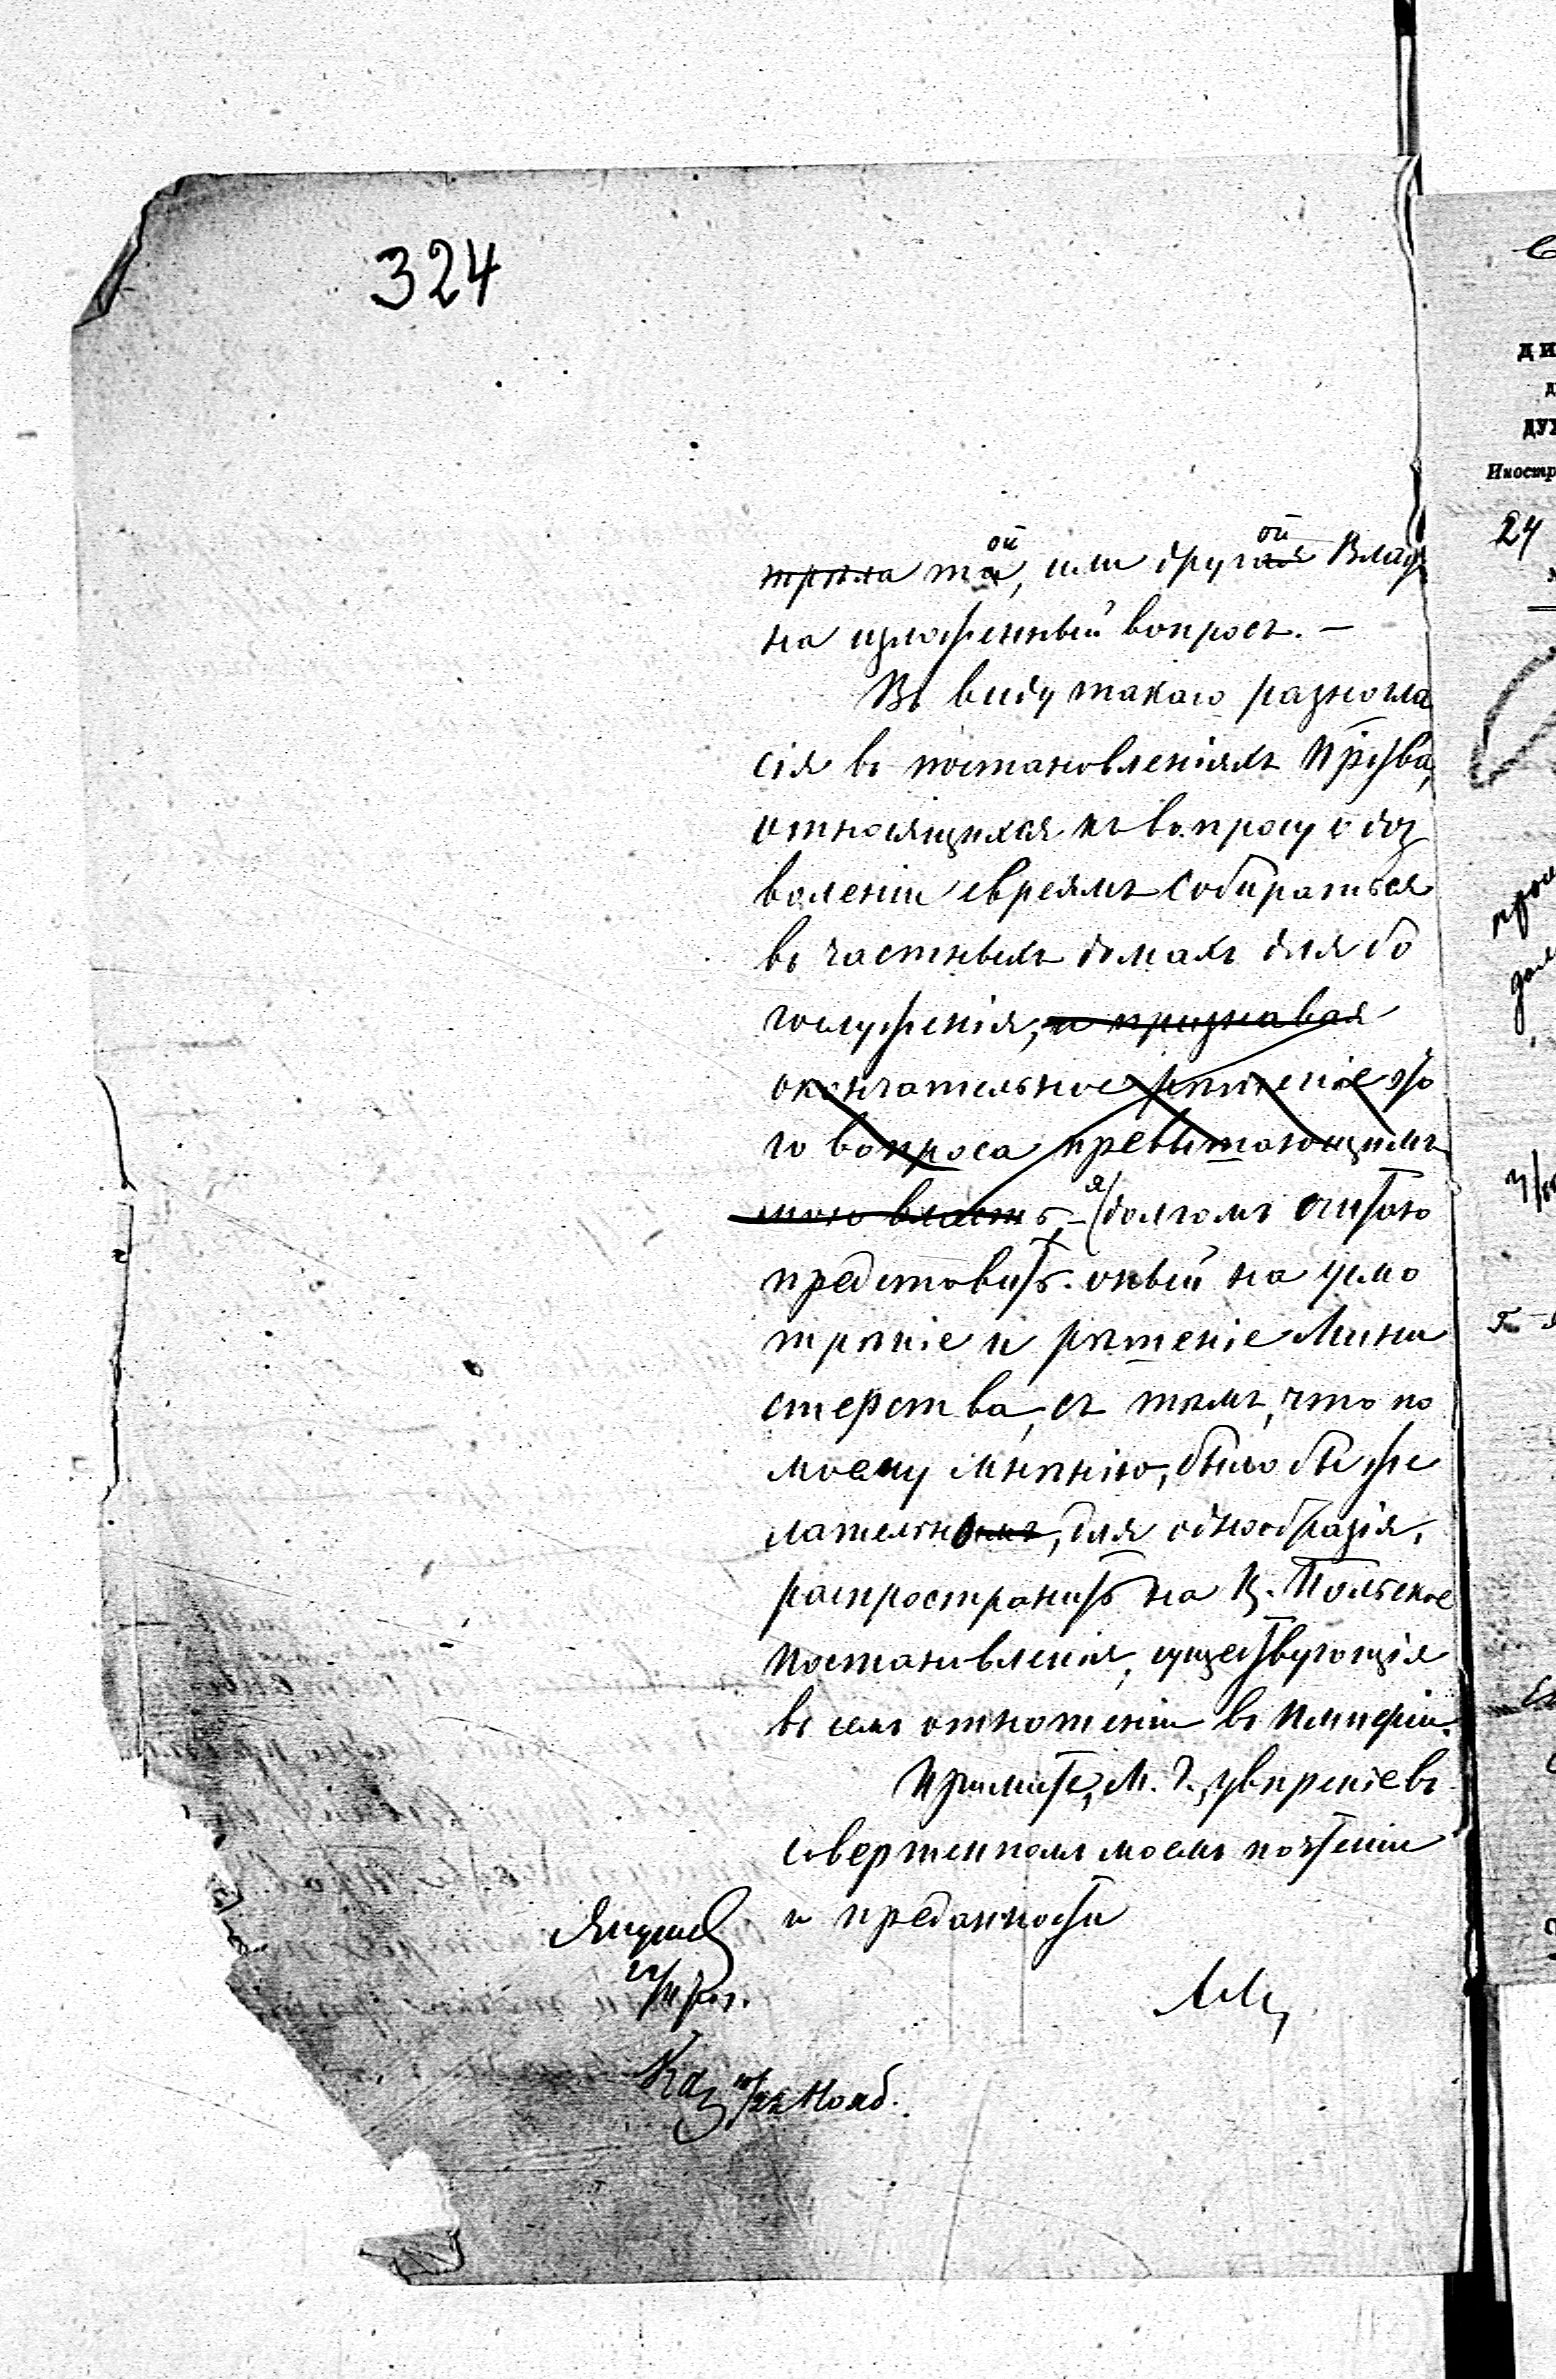 324
трѣла той, или другой Влад
на изложенный вопросъ. —
Въ виду такаго разногла
сія въ постановленіяхъ Пр-ства,
относящихся къ вопросу о доз
воленіи евреямъ собираться
въ частныхъ домахъ для бо
гослуженія, и признавая
окончательное рѣшеніе это
го вопроса превышающимъ
мою власть, – я долгомъ считаю
представить оный на усмо
трѣніе и рѣшеніе Мини
стерства, съ тѣмъ, что по
моему мнѣнію, было бы же
лательно, для однообразія,
распространить на Ц. Польское
постановленія, существующія
въ семъ отношеніи въ Имперіи.
Примите, М. Г., увѣреніе въ
совершенномъ моемъ почтеніи
и преданности
22 Нояб.
ДИ
Д
ДУХ
Иностр
24